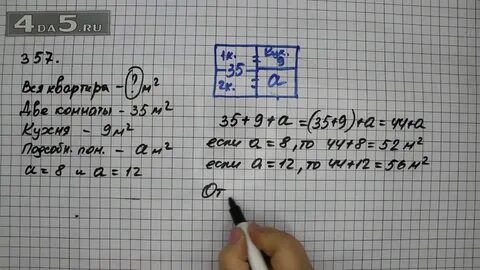 4DA5.RU
357.
Вся квартира - ? м²
Две комнаты - 35 м²
Кухня - 9 м²
Подсобн. пом. - a м²
a = 8 и a = 12
1к. Кух.
35 = 9
2к. = a
35 + 9 + a = (35+9) + a = 44 + a
если a = 8, то 44+8 = 52 м²
если a = 12, то 44+12 = 56 м²
От